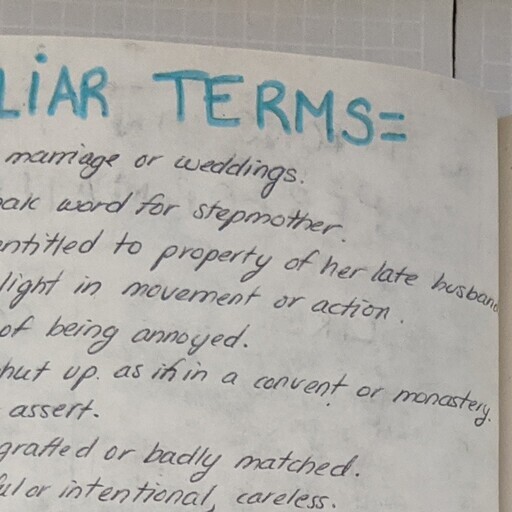 LIAR TERMS=
marriage or weddings.
word for stepmother.
entitled to property of her late husband
light in movement or action.
of being annoyed.
shut up. as if in a convent or monastery.
assert.
grafted or badly matched.
or intentional, careless.